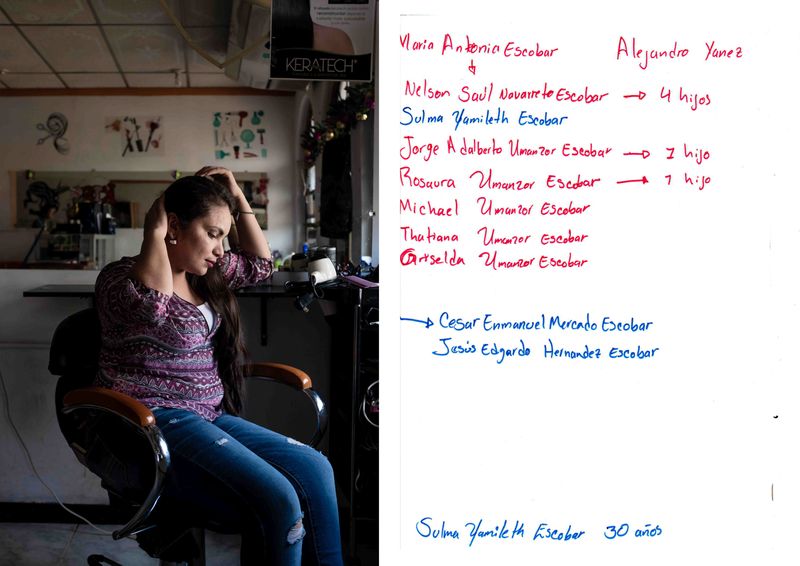 KERATECH®
Maria Antonia Escobar Alejandro Yanez
Nelson Saúl Navarreto Escobar → 4 hijos
Sulma Yamileth Escobar
Jorge Adalberto Umanzor Escobar → 1 hijo
Rosaura Umanzor Escobar → 1 hijo
Michael Umanzor Escobar
Thatiana Umanzor Escobar
Griselda Umanzor Escobar
→ Cesar Enmanuel Mercado Escobar
Jesús Edgardo Hernandez Escobar
Sulma Yamileth Escobar 30 años